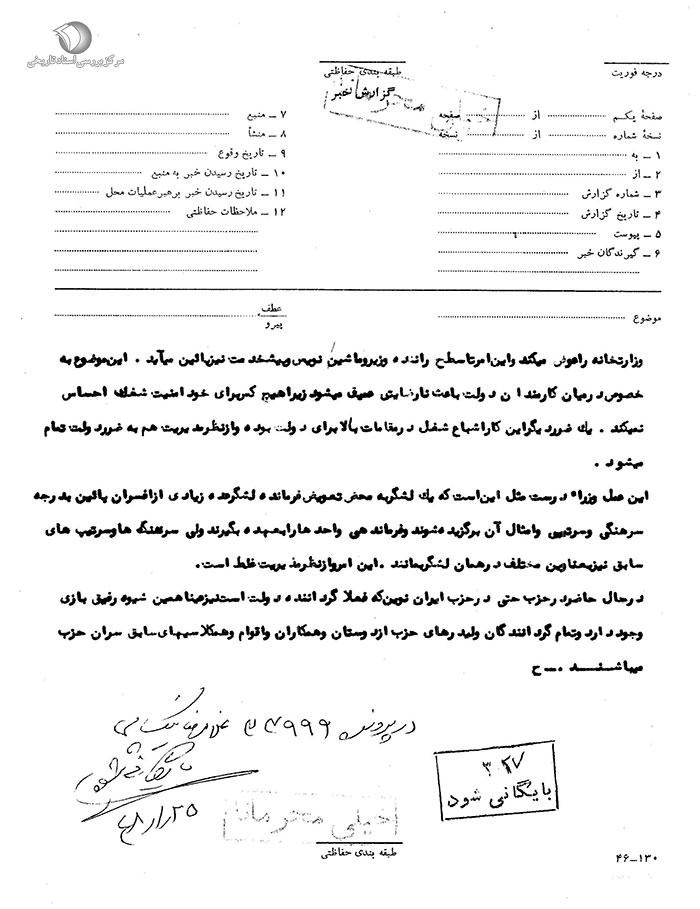 مرکز بررسی اسناد تاریخی
درجه فوریت
طبقه‌بندی حفاظتی
گزارش خبر
صفحهٔ یکم از صفحه
نسخهٔ شماره از نسخه
۱ ــ به
۲ ــ از
۳ ــ شماره گزارش
۴ ــ تاریخ گزارش
۵ ــ پیوست
۶ ــ گیرندگان خبر
۷ ــ منبع
۸ ــ منشأ
۹ ــ تاریخ وقوع
۱۰ ــ تاریخ رسیدن خبر به منبع
۱۱ ــ تاریخ رسیدن خبر برهبر عملیات محل
۱۲ ــ ملاحظات حفاظتی
موضوع
عطف
پیرو
وزارتخانه راعوض میکند واین امرتاسطح راننده وزیروماشین نویس وپیشخدمت نیزپائین میآید . این موضوع به
خصوص درمیان کارمندان دولت باعث نارضایتی عمیق میشود زیراهیچ کس برای خود امنیت شغلی احساس
نمیکند . یک ضرر دیگراین کاراشباع شغل درمقامات بالا برای دولت بوده وازنظرمدیریت هم به ضرردولت تمام
میشود .
این عمل وزراء درست مثل این است که یک لشگربه محض تعویض فرمانده لشگرعده زیادی ازافسران پائین بدرجه
سرهنگی وسرتیپی وامثال آن برگزیده شوند وفرماندهی واحدهارابعهده بگیرند ولی سرهنگ هاوسرتیپ های
سابق نیزبعناوین مختلف درهمان لشگربمانند . این امرازنظرمدیریت غلط است.
درحال حاضردرحزب حتی درحزب ایران نوین که فعلا گرداننده دولت است نیزعینا همین شیوه رفیق بازی
وجود دارد وتمام گردانندگان ولیدرهای حزب ازدوستان وهمکاران واقوام وهمکلاسیهای سابق سران حزب
میباشنـــد .ــ ح
در پرونده ۲۴۹۹۹ غلامرضا نیک‌پی
بایگانی شود
بایگانی شود
خیلی محرمانه
طبقه بندی حفاظتی
۴۶ــ۱۳۰